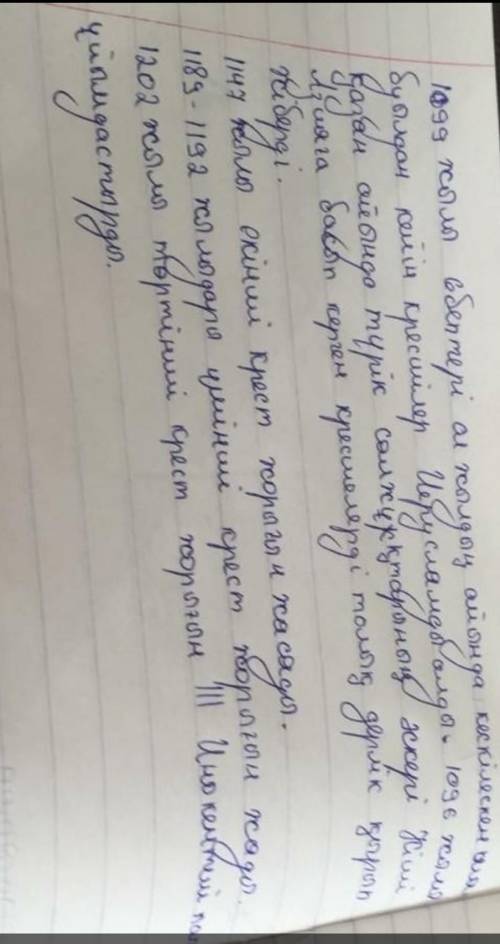 1099 жылы әбептері ш жылдың айында кескілескен ш
буылдан кейін кресшілер Иерусламды алды. 1096 жылы
қазан айында түрік сәлжұқтарының әскері Кіші
Азияға басып керген кресшелерді толық дерлік қырып
жіберді.
1147 жылы екінші крест жорығын жасады.
1189-1192 жылыдары үшінші крест жорығын жады.
1202 жылы төртінші крест жорығын III Инокентий па
ұйымдастырды.